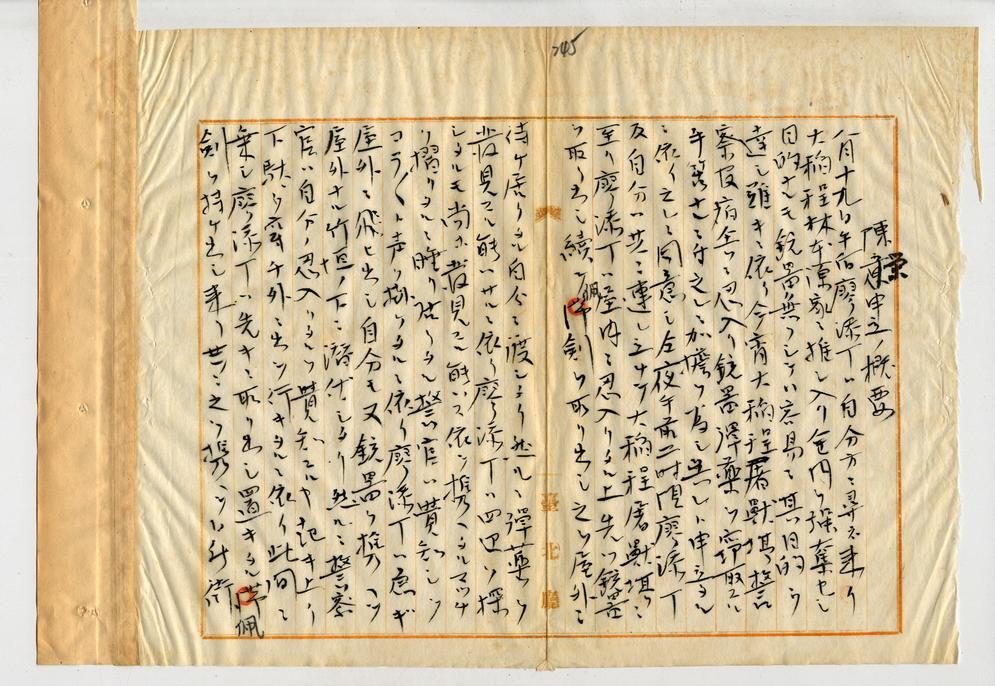 陳貴申立ノ概要
八月十九日午后廖添丁ハ自分方ニ尋ネ来リ
大稲埕林本源家ニ推シ入リ金円ヲ強奪セシ
目的ナルモ銃器無クシテハ容易ニ其ノ目的ヲ
達シ難キニ依リ今宵大稲埕屠獣場警
察官宿舎ニ忍入リ銃器弾薬ヲ窃取スル
手筈ナルニ付之レニ加擔ヲ為シ呉レト申立タル
ニ依リ之レニ同意シ仝夜午前二時頃廖添丁
及自分ハ共ニ連レ立チ大稲埕屠獣場ニ
至リ廖添丁ハ室内ニ忍入リタル上先ニ銃器
ヲ取出シ続テ佩剣ヲ取リ出シ之ヲ屋外ニ
待チ居リタル自分ニ渡シタリ然ルニ弾薬ヲ
発見スル能ハサルニ依リ廖添丁ハ四辺ヲ探
シタルモ尚ホ発見スル能ハス依ツテ携ヘタルマッチ
ヲ摺リタルニ睡リ居タル警官ハ覚知シ
コラヽヽト声ヲ掛ケタルニ依リ廖添丁ハ急ギ
屋外ニ飛ヒ出シ自分モ又銃器ヲ携ヘツヽ
屋外ナル竹垣ノ下ニ潜伏シタリ然ルニ警察
官ハ自分ノ忍入リタルヲ覚知スルヤ起キ上リ
下駄ヲ穿チ外ニ出テ行キタルニ依リ此間ニ
乗シ廖添丁ハ先キニ取リ出シ置キタル佩
剣ヲ持チ出シ来リ共ニ之ヲ携ヘツヽ新街
臺北廳
745